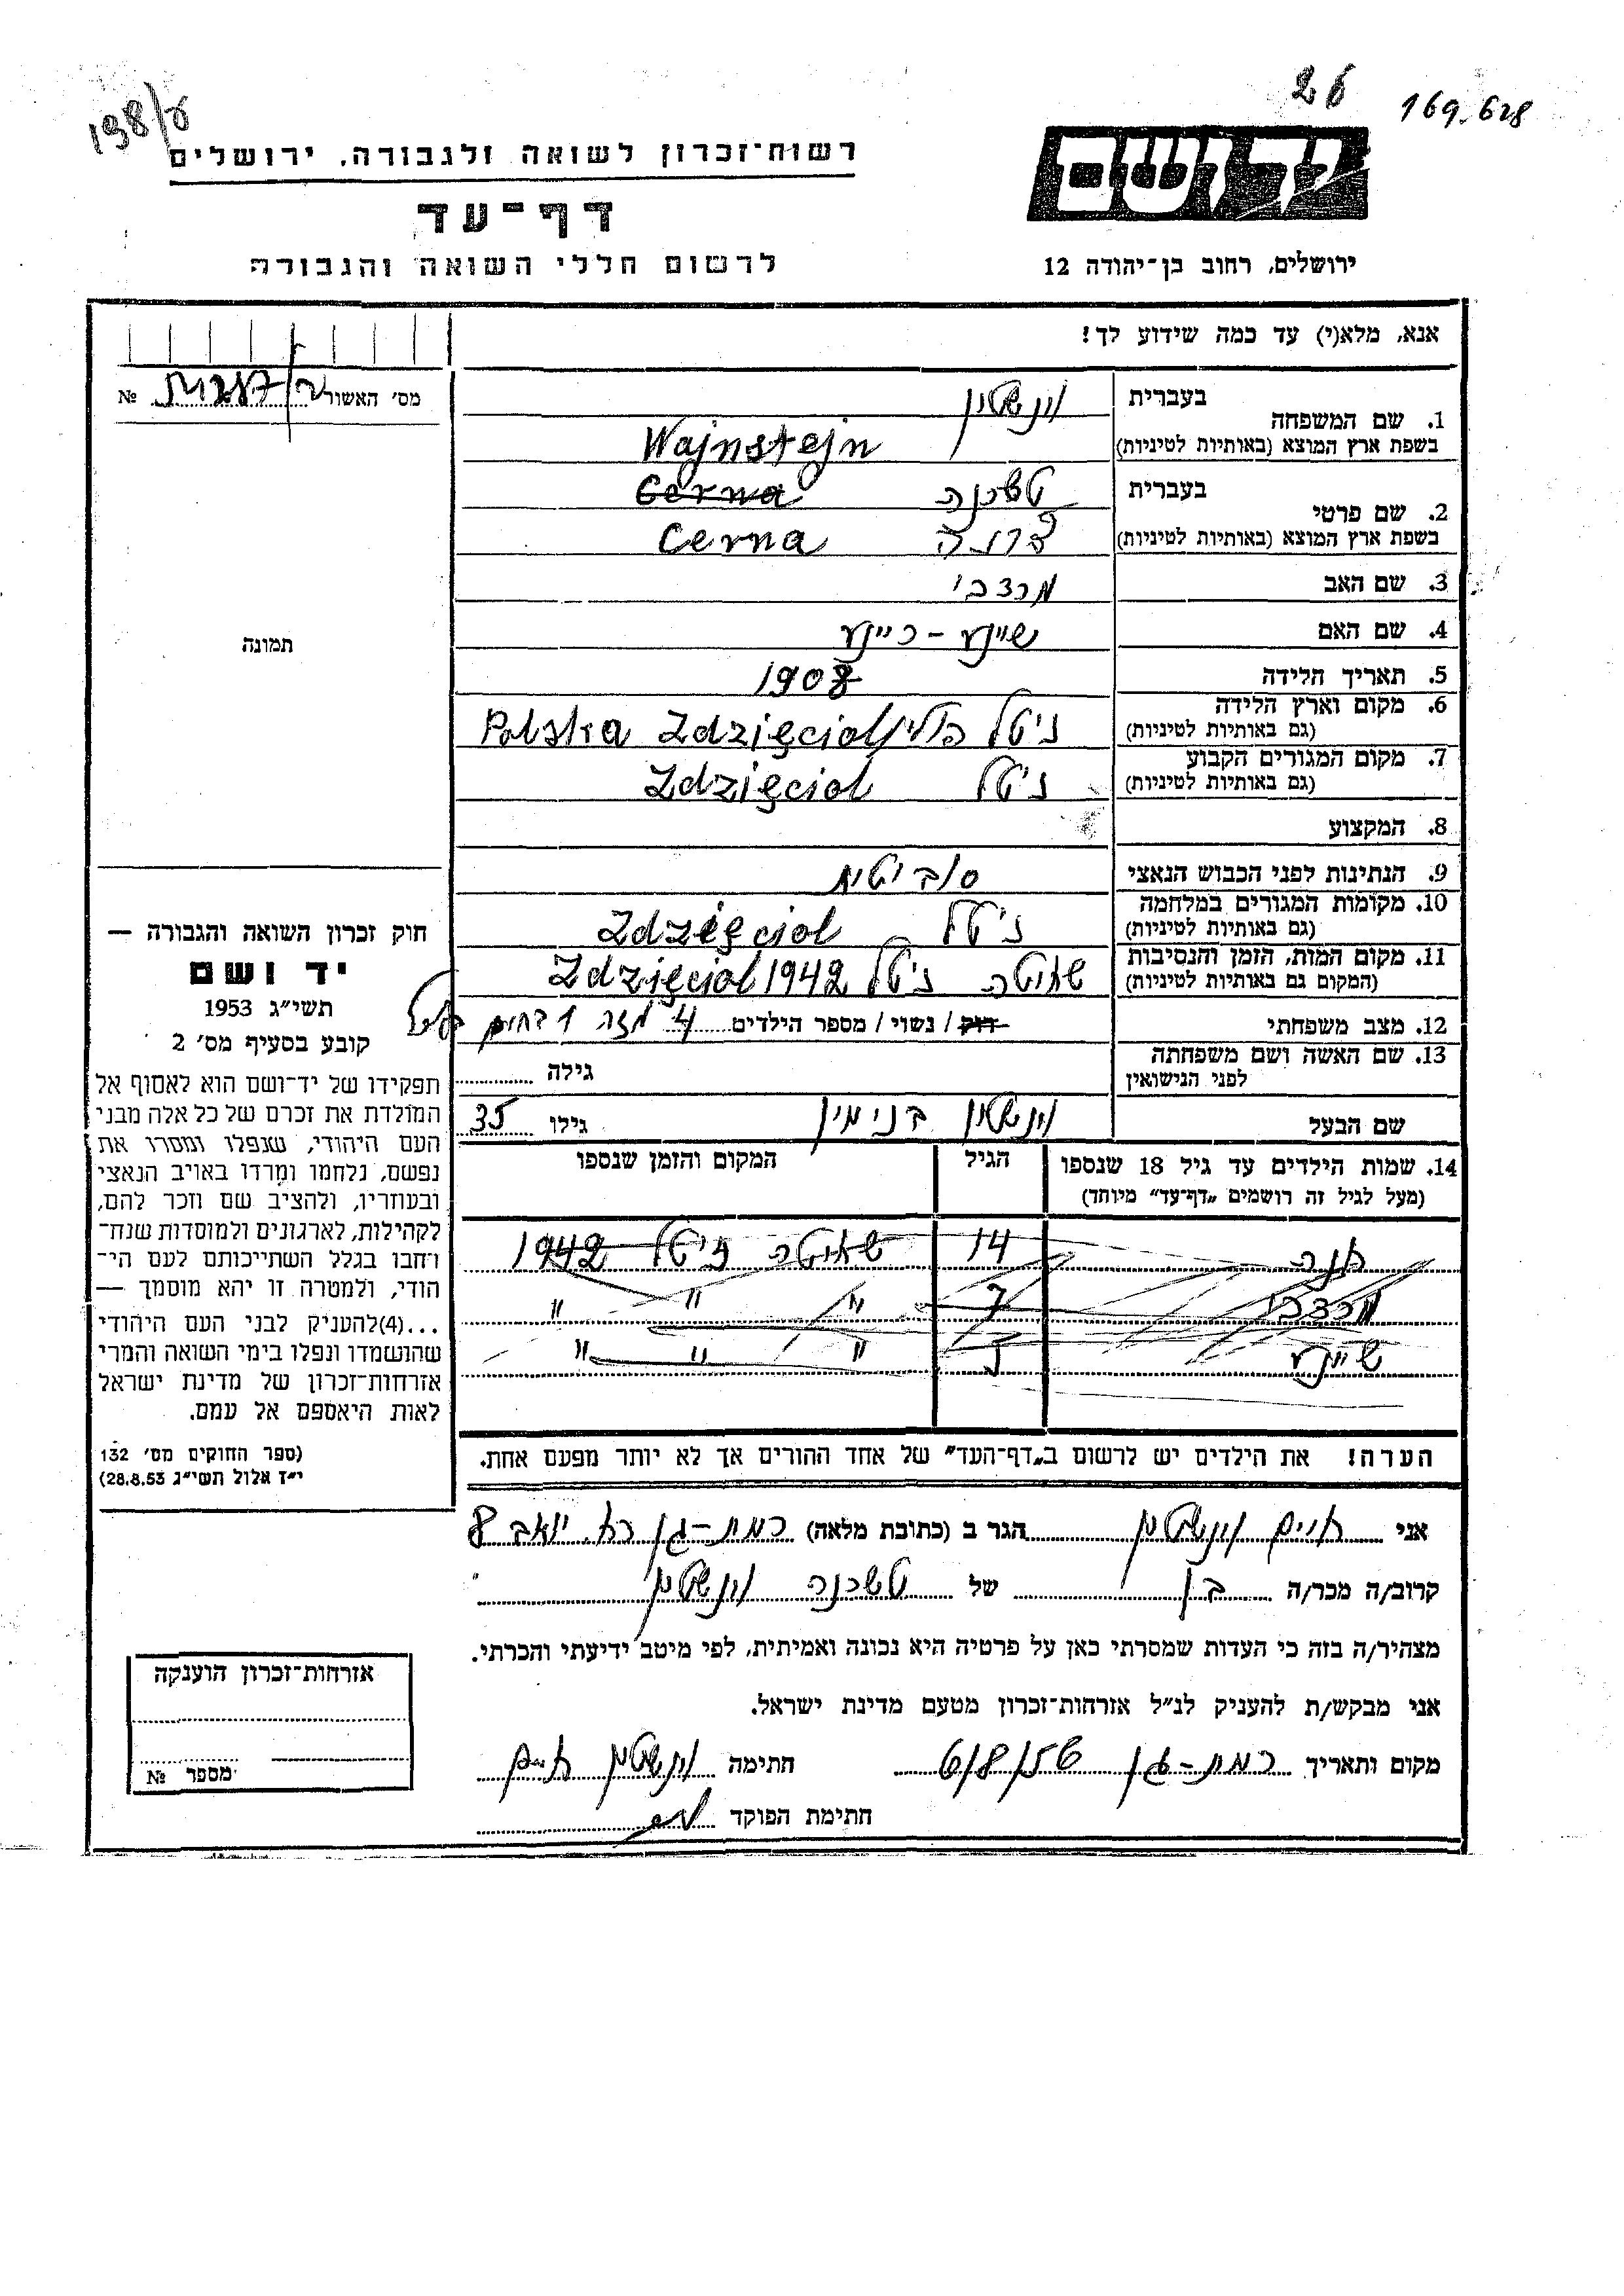 198/ע
26
169.628
רשות־זכרון לשואה ולגבורה, ירושלים
דף־עד
לרשום חללי השואה והגבורה
יד ושם
ירושלים, רחוב בן־יהודה 12
אנא, מלא(י) עד כמה שידוע לך!
מס׳ האשור № 
1. שם המשפחה בעברית וינשטין
בשפת ארץ המוצא (באותיות לטיניות) Wajnstejn
2. שם פרטי בעברית טשרנה Cerna
בשפת ארץ המוצא (באותיות לטיניות) צרנה Cerna
3. שם האב מרדכי
4. שם האם שיינע - ריינע
5. תאריך הלידה 1908
6. מקום וארץ הלידה (גם באותיות לטיניות) ז׳טל פולין Polska Zdzięciol
7. מקום המגורים הקבוע (גם באותיות לטיניות) ז׳טל Zdzięciol
8. המקצוע
9. הנתינות לפני הכבוש הנאצי סוביטית
10. מקומות המגורים במלחמה (גם באותיות לטיניות) ז׳טל Zdzięciol
11. מקום המות, הזמן והנסיבות (המקום גם באותיות לטיניות) שחיטה ז׳טל Zdzięciol 1942
12. מצב משפחתי רוק / נשוי / מספר הילדים 4 מזה 1 בחיים
13. שם האשה ושם משפחתה לפני הנישואין גילה
שם הבעל וינשטין בנימין גילו 35
14. שמות הילדים עד גיל 18 שנספו הגיל המקום והזמן שנספו
(מעל לגיל זה רושמים „דף־עד” מיוחד)
חנה 14 שחיטה ז׳טל 1942
מרדכי 7 " " "
שיינע " " "
הערה! את הילדים יש לרשום ב„דף־העד” של אחד ההורים אך לא יותר מפעם אחת.
תמונה
חוק זכרון השואה והגבורה —
יד ושם
תשי״ג 1953
קובע בסעיף מס׳ 2
תפקידו של יד־ושם הוא לאסוף אל
המולדת את זכרם של כל אלה מבני
העם היהודי, שנפלו ומסרו את
נפשם, נלחמו ומרדו באויב הנאצי
ובעוזריו, ולהציב שם וזכר להם,
לקהילות, לארגונים ולמוסדות שנח־
רחבו בגלל השתייכותם לעם הי־
הודי, ולמטרה זו יהא מוסמך —
...(4)להעניק לבני העם היהודי
שהושמדו ונפלו בימי השואה והמרי
אזרחות־זכרון של מדינת ישראל
לאות היאספם אל עמם.
(ספר החוקים מס׳ 132
י״ז אלול תשי״ג 28.8.53)
אני חיים וינשטין הגר ב (כתובת מלאה) רמת-גן רח. יואב 8
קרוב/ה מכר/ה בן של טשרנה וינשטין
מצהיר/ה בזה כי העדות שמסרתי כאן על פרטיה היא נכונה ואמיתית, לפי מיטב ידיעתי והכרתי.
אני מבקש/ת להעניק לנ״ל אזרחות־זכרון מטעם מדינת ישראל.
מקום ותאריך רמת-גן חתימה וינשטין חיים
חתימת הפוקד
אזרחות־זכרון הוענקה
מספר №